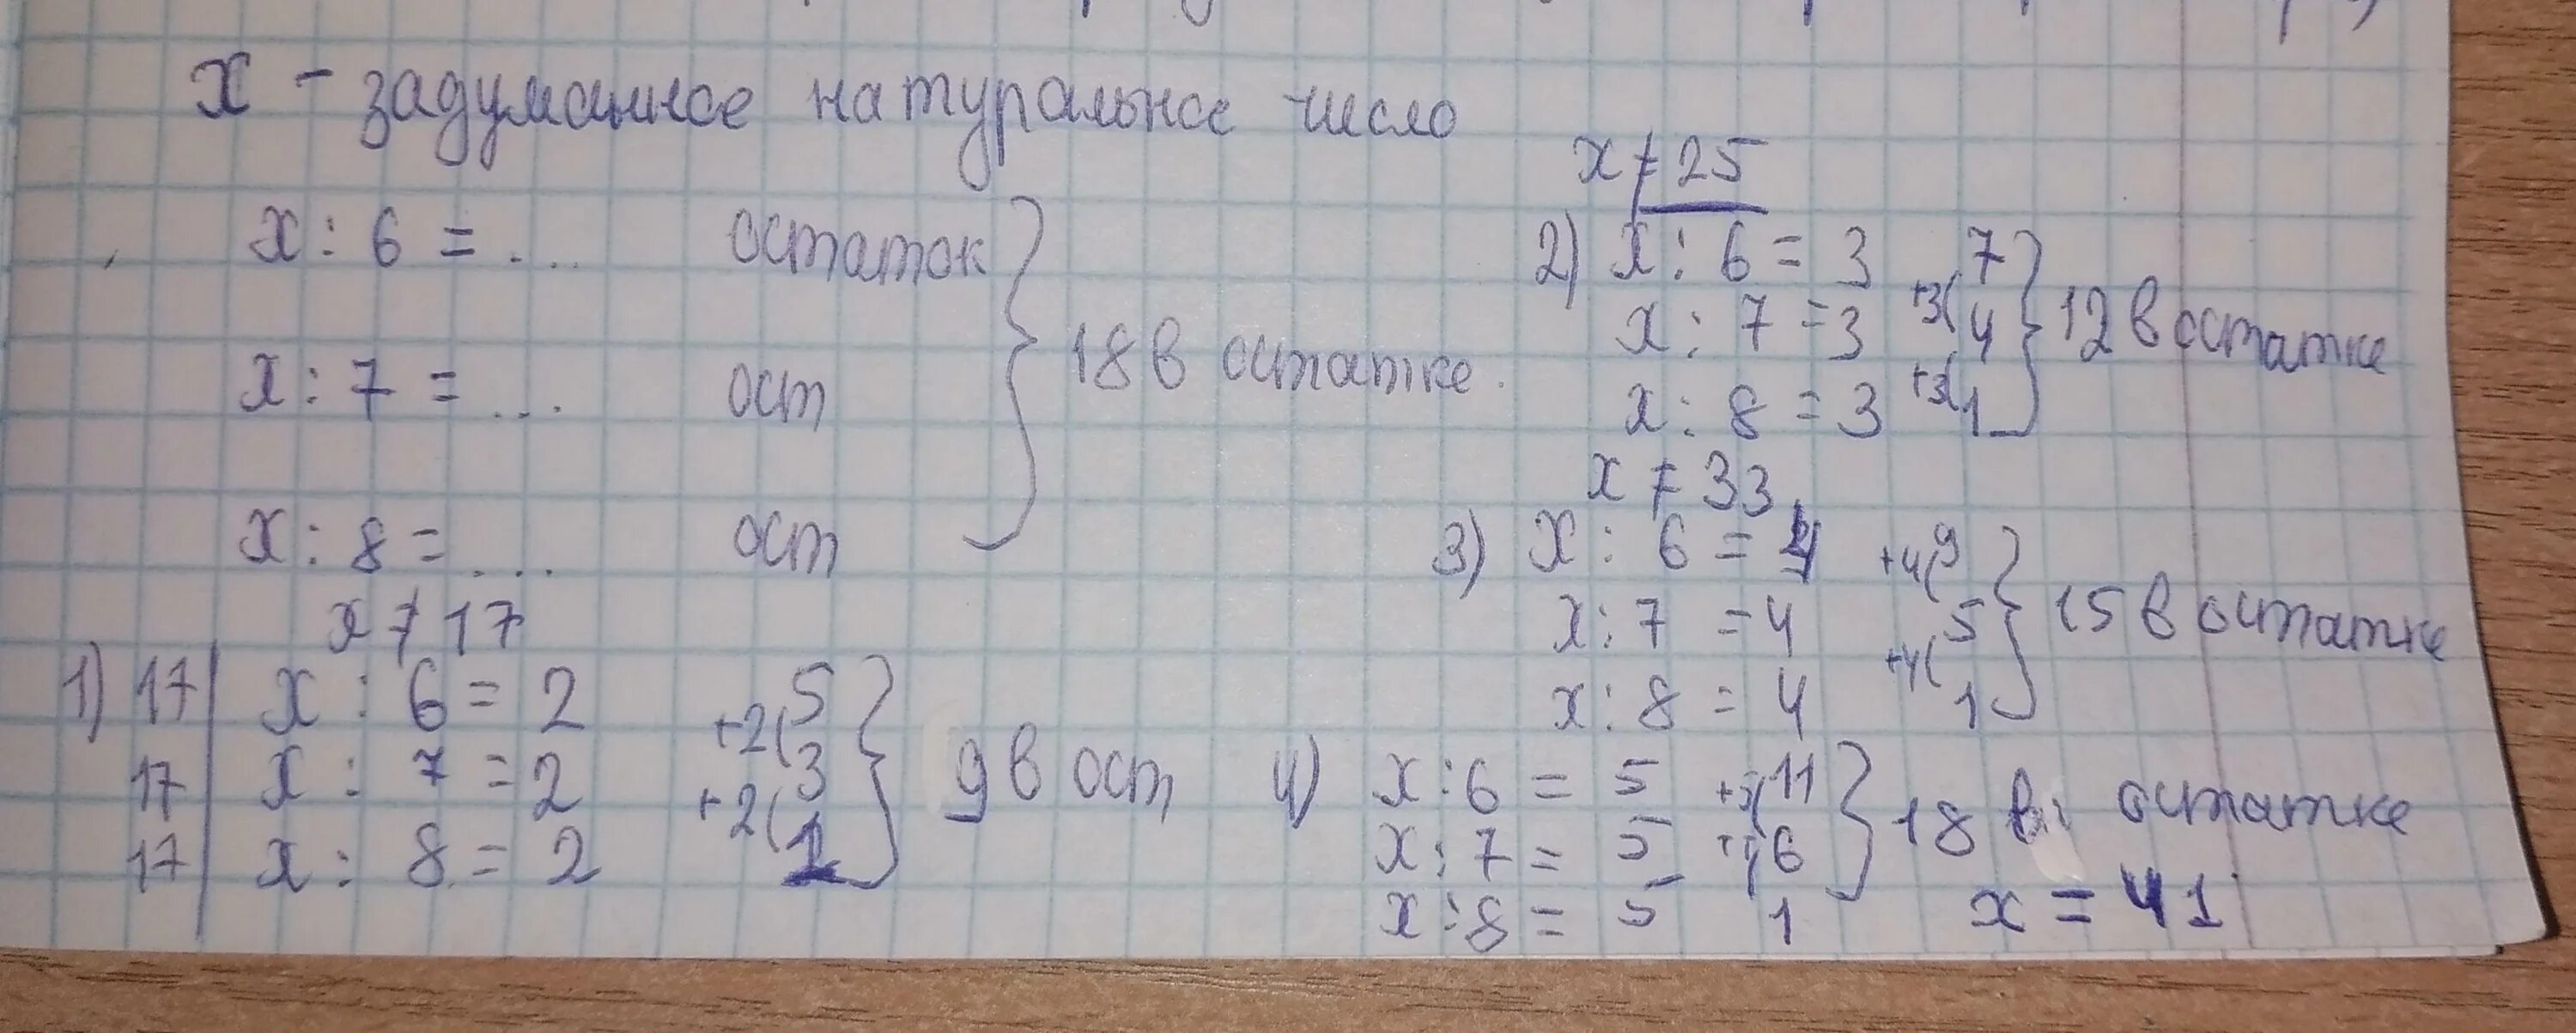 x - задуманное натуральное число
x : 6 = ... остаток
x : 7 = ... ост
x : 8 = ... ост
18 в остатке.
x ≠ 17
1) 17 | x : 6 = 2 +2( 5
17 | x : 7 = 2 +2( 3
17 | x : 8 = 2 1
9 в ост
x ≠ 25
2) x : 6 = 3 7
x : 7 = 3 +3( 4
x : 8 = 3 +3( 1
12 в остатке
x ≠ 33
3) x : 6 = 4 +4( 9
x : 7 = 4 5
x : 8 = 4 +4( 1
15 в остатке
4) x : 6 = 5 +5( 11
x : 7 = 5 6
x : 8 = 5 1
18 в остатке
x = 41